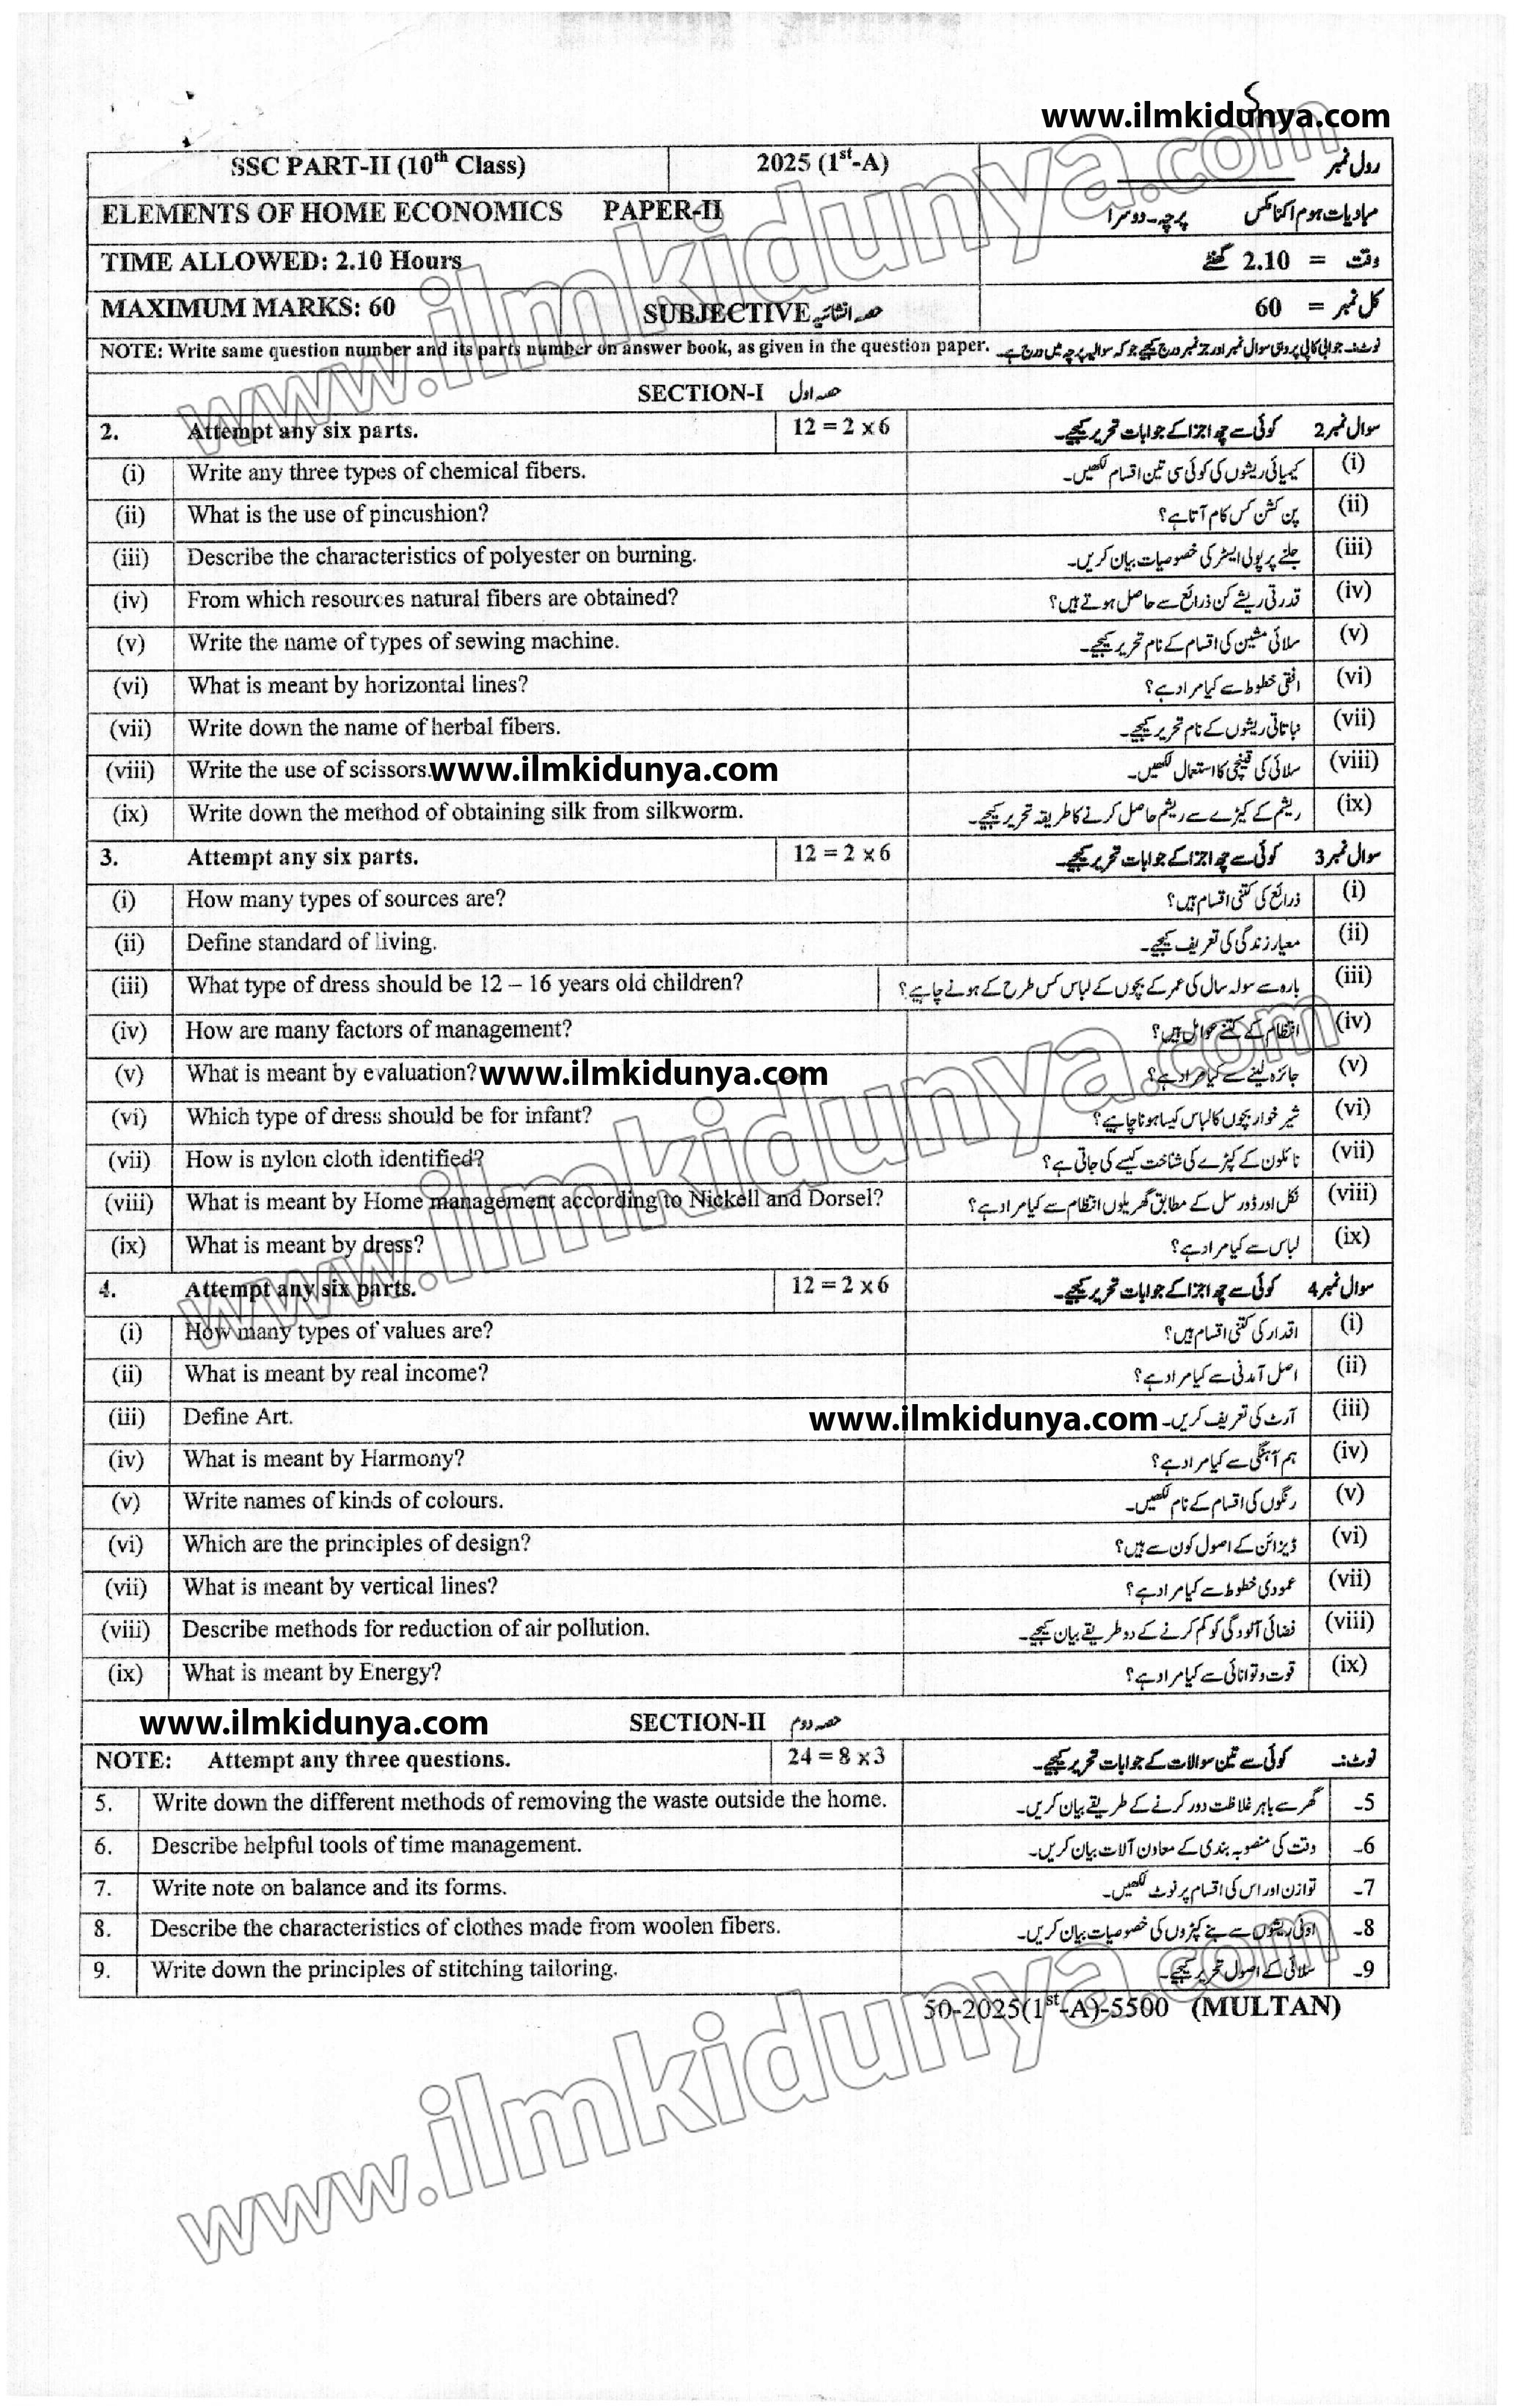 www.ilmkidunya.com
SSC PART-II (10th Class) 2025 (1st-A) رول نمبر
ELEMENTS OF HOME ECONOMICS PAPER-II مبادیات ہوم اکنامکس پرچہ۔دوسرا
TIME ALLOWED: 2.10 Hours وقت = 2.10 گھنٹے
MAXIMUM MARKS: 60 SUBJECTIVE حصہ انشائیہ کل نمبر = 60
NOTE: Write same question number and its parts number on answer book, as given in the question paper. نوٹ:۔ جوابی کاپی پر وہی سوال نمبر اور جز نمبر درج کیجیے جو کہ سوالیہ پرچہ میں درج ہے۔
SECTION-I حصہ اول
2. Attempt any six parts. 12 = 2 x 6 سوال نمبر 2 کوئی سے چھ اجزا کے جوابات تحریر کیجیے۔
(i) Write any three types of chemical fibers. کیمیائی ریشوں کی کوئی سی تین اقسام لکھیں۔ (i)
(ii) What is the use of pincushion? پن کشن کس کام آتا ہے؟ (ii)
(iii) Describe the characteristics of polyester on burning. جلنے پر پولی ایسٹر کی خصوصیات بیان کریں۔ (iii)
(iv) From which resources natural fibers are obtained? قدرتی ریشے کن ذرائع سے حاصل ہوتے ہیں؟ (iv)
(v) Write the name of types of sewing machine. سلائی مشین کی اقسام کے نام تحریر کیجیے۔ (v)
(vi) What is meant by horizontal lines? افقی خطوط سے کیا مراد ہے؟ (vi)
(vii) Write down the name of herbal fibers. نباتاتی ریشوں کے نام تحریر کیجیے۔ (vii)
(viii) Write the use of scissors. www.ilmkidunya.com سلائی کی قینچی کا استعمال لکھیں۔ (viii)
(ix) Write down the method of obtaining silk from silkworm. ریشم کے کیڑے سے ریشم حاصل کرنے کا طریقہ تحریر کیجیے۔ (ix)
3. Attempt any six parts. 12 = 2 x 6 سوال نمبر 3 کوئی سے چھ اجزا کے جوابات تحریر کیجیے۔
(i) How many types of sources are? ذرائع کی کتنی اقسام ہیں؟ (i)
(ii) Define standard of living. معیار زندگی کی تعریف کیجیے۔ (ii)
(iii) What type of dress should be 12 – 16 years old children? بارہ سے سولہ سال کی عمر کے بچوں کے لباس کس طرح کے ہونے چاہیے؟ (iii)
(iv) How are many factors of management? انتظام کے کتنے عوامل ہیں؟ (iv)
(v) What is meant by evaluation? www.ilmkidunya.com جائزہ لینے سے کیا مراد ہے؟ (v)
(vi) Which type of dress should be for infant? شیر خوار بچوں کا لباس کیسا ہونا چاہیے؟ (vi)
(vii) How is nylon cloth identified? نائلون کے کپڑے کی شناخت کیسے کی جاتی ہے؟ (vii)
(viii) What is meant by Home management according to Nickell and Dorsel? نکل اور ڈورسل کے مطابق گھریلوں انتظام سے کیا مراد ہے؟ (viii)
(ix) What is meant by dress? لباس سے کیا مراد ہے؟ (ix)
4. Attempt any six parts. 12 = 2 x 6 سوال نمبر 4 کوئی سے چھ اجزا کے جوابات تحریر کیجیے۔
(i) How many types of values are? اقدار کی کتنی اقسام ہیں؟ (i)
(ii) What is meant by real income? اصل آمدنی سے کیا مراد ہے؟ (ii)
(iii) Define Art. www.ilmkidunya.com آرٹ کی تعریف کریں۔ (iii)
(iv) What is meant by Harmony? ہم آہنگی سے کیا مراد ہے؟ (iv)
(v) Write names of kinds of colours. رنگوں کی اقسام کے نام لکھیں۔ (v)
(vi) Which are the principles of design? ڈیزائن کے اصول کون سے ہیں؟ (vi)
(vii) What is meant by vertical lines? عمودی خطوط سے کیا مراد ہے؟ (vii)
(viii) Describe methods for reduction of air pollution. فضائی آلودگی کو کم کرنے کے دو طریقے بیان کیجیے۔ (viii)
(ix) What is meant by Energy? قوت و توانائی سے کیا مراد ہے؟ (ix)
www.ilmkidunya.com SECTION-II حصہ دوم
NOTE: Attempt any three questions. 24 = 8 x 3 نوٹ:۔ کوئی سے تین سوالات کے جوابات تحریر کیجیے۔
5. Write down the different methods of removing the waste outside the home. گھر سے باہر غلاظت دور کرنے کے طریقے بیان کریں۔ 5۔
6. Describe helpful tools of time management. وقت کی منصوبہ بندی کے معاون آلات بیان کریں۔ 6۔
7. Write note on balance and its forms. توازن اور اس کی اقسام پر نوٹ لکھیں۔ 7۔
8. Describe the characteristics of clothes made from woolen fibers. اونی ریشوں سے بنے کپڑوں کی خصوصیات بیان کریں۔ 8۔
9. Write down the principles of stitching tailoring. سلائی کے اصول تحریر کیجیے۔ 9۔
50-2025(1st-A)-5500 (MULTAN)
www.ilmkidunya.com
www.ilmkidunya.com
www.ilmkidunya.com